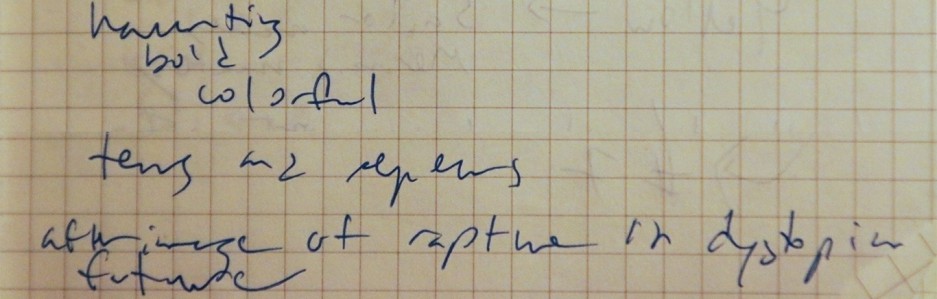 haunting
bold
colorful
tense and
afterimage of rapture in dystopian
future